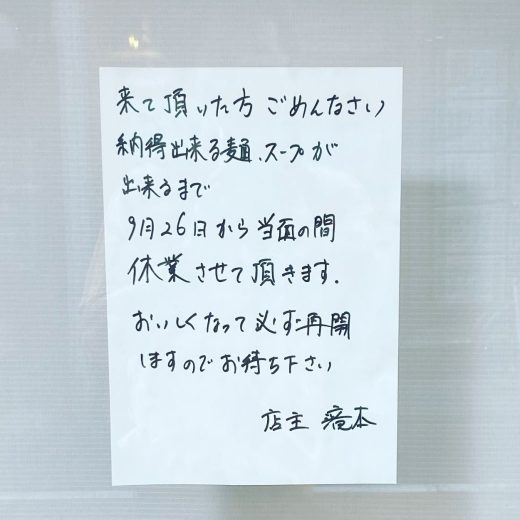 来て頂いた方 ごめんなさい
納得出来る麺、スープが
出来るまで
9月26日から当面の間
休業させて頂きます.
おいしくなって必ず再開
しますのでお待ち下さい
店主 瘡本